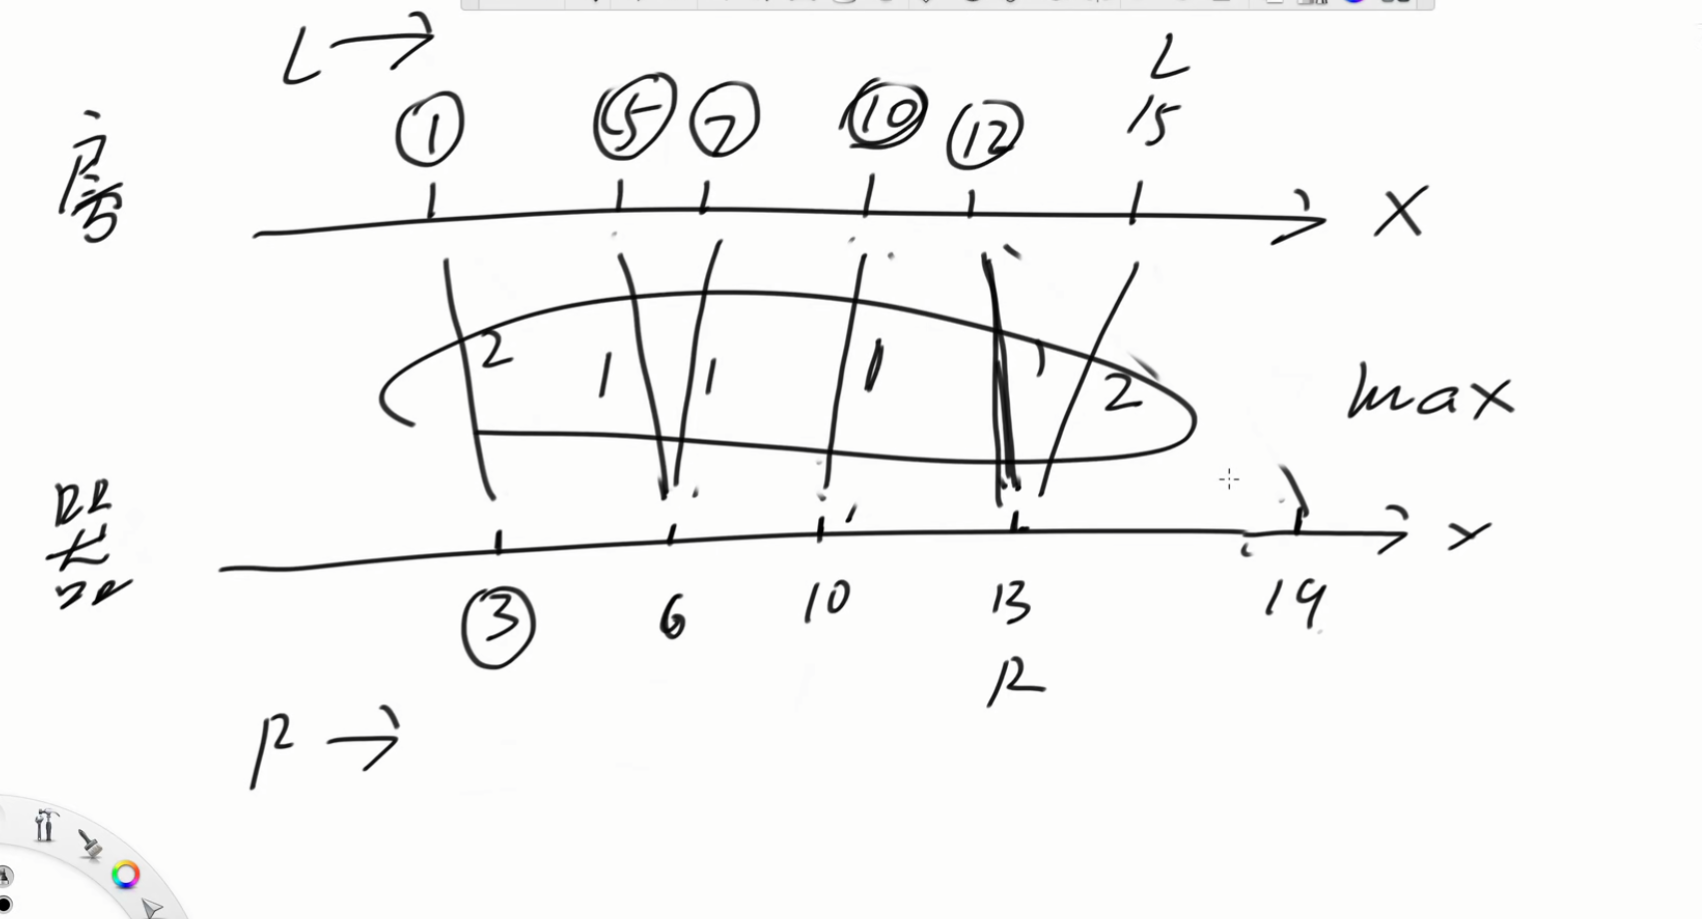 L →
L
房
① ⑤ ⑦ ⑩ ⑫ 15
X
2 1 1 1 1 2
max
X
③ 6 10 13 19
R
R →